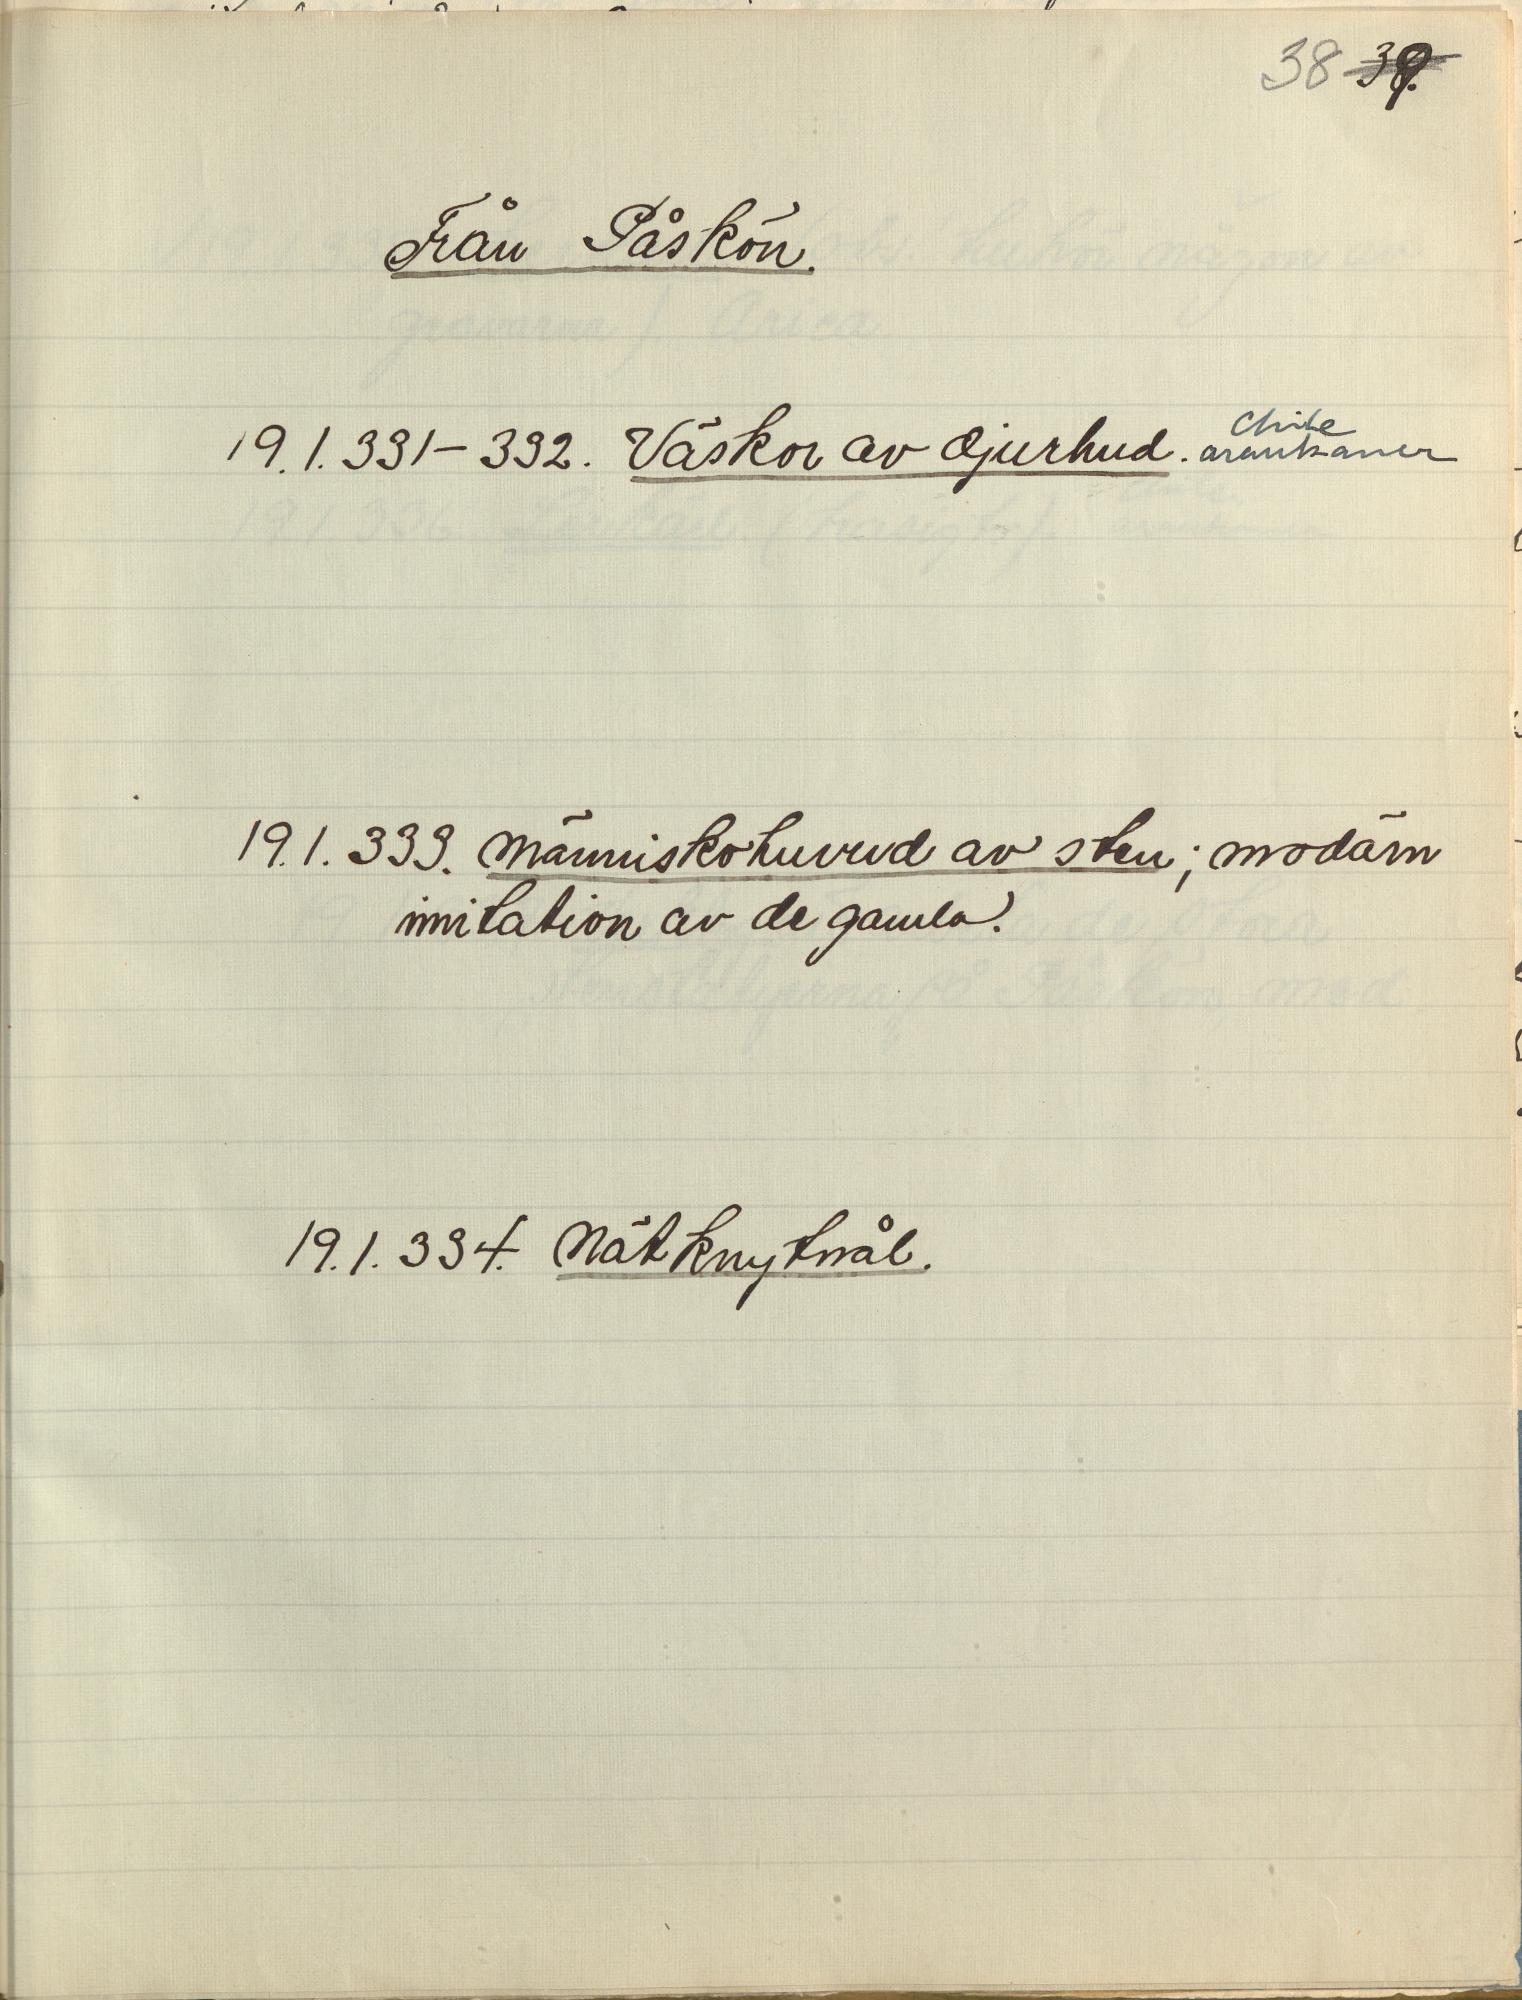 38 39.
Från Påskön.
Chile
19.1.331-332. Väskor av djurhud. araukaner
19.1.333. Människohuvud av sten; modärn
imitation av de gamla.
19.1.334. Nätknytnål.